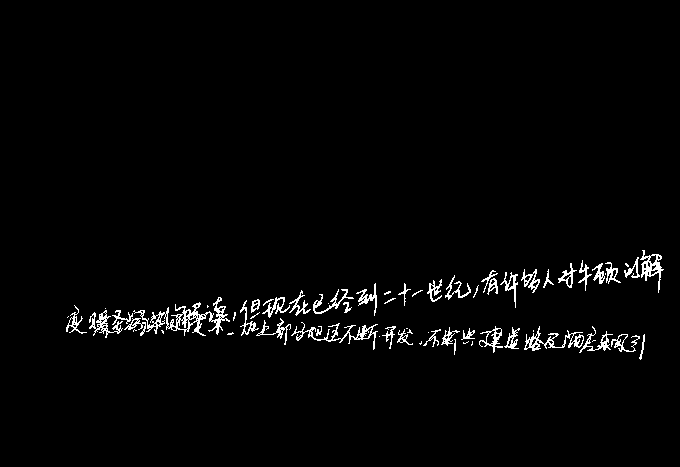 但现在已经到二十一世纪,有许多人对牛顿的解
加上部分地区不断开发,不断兴建道路及酒店来吸引